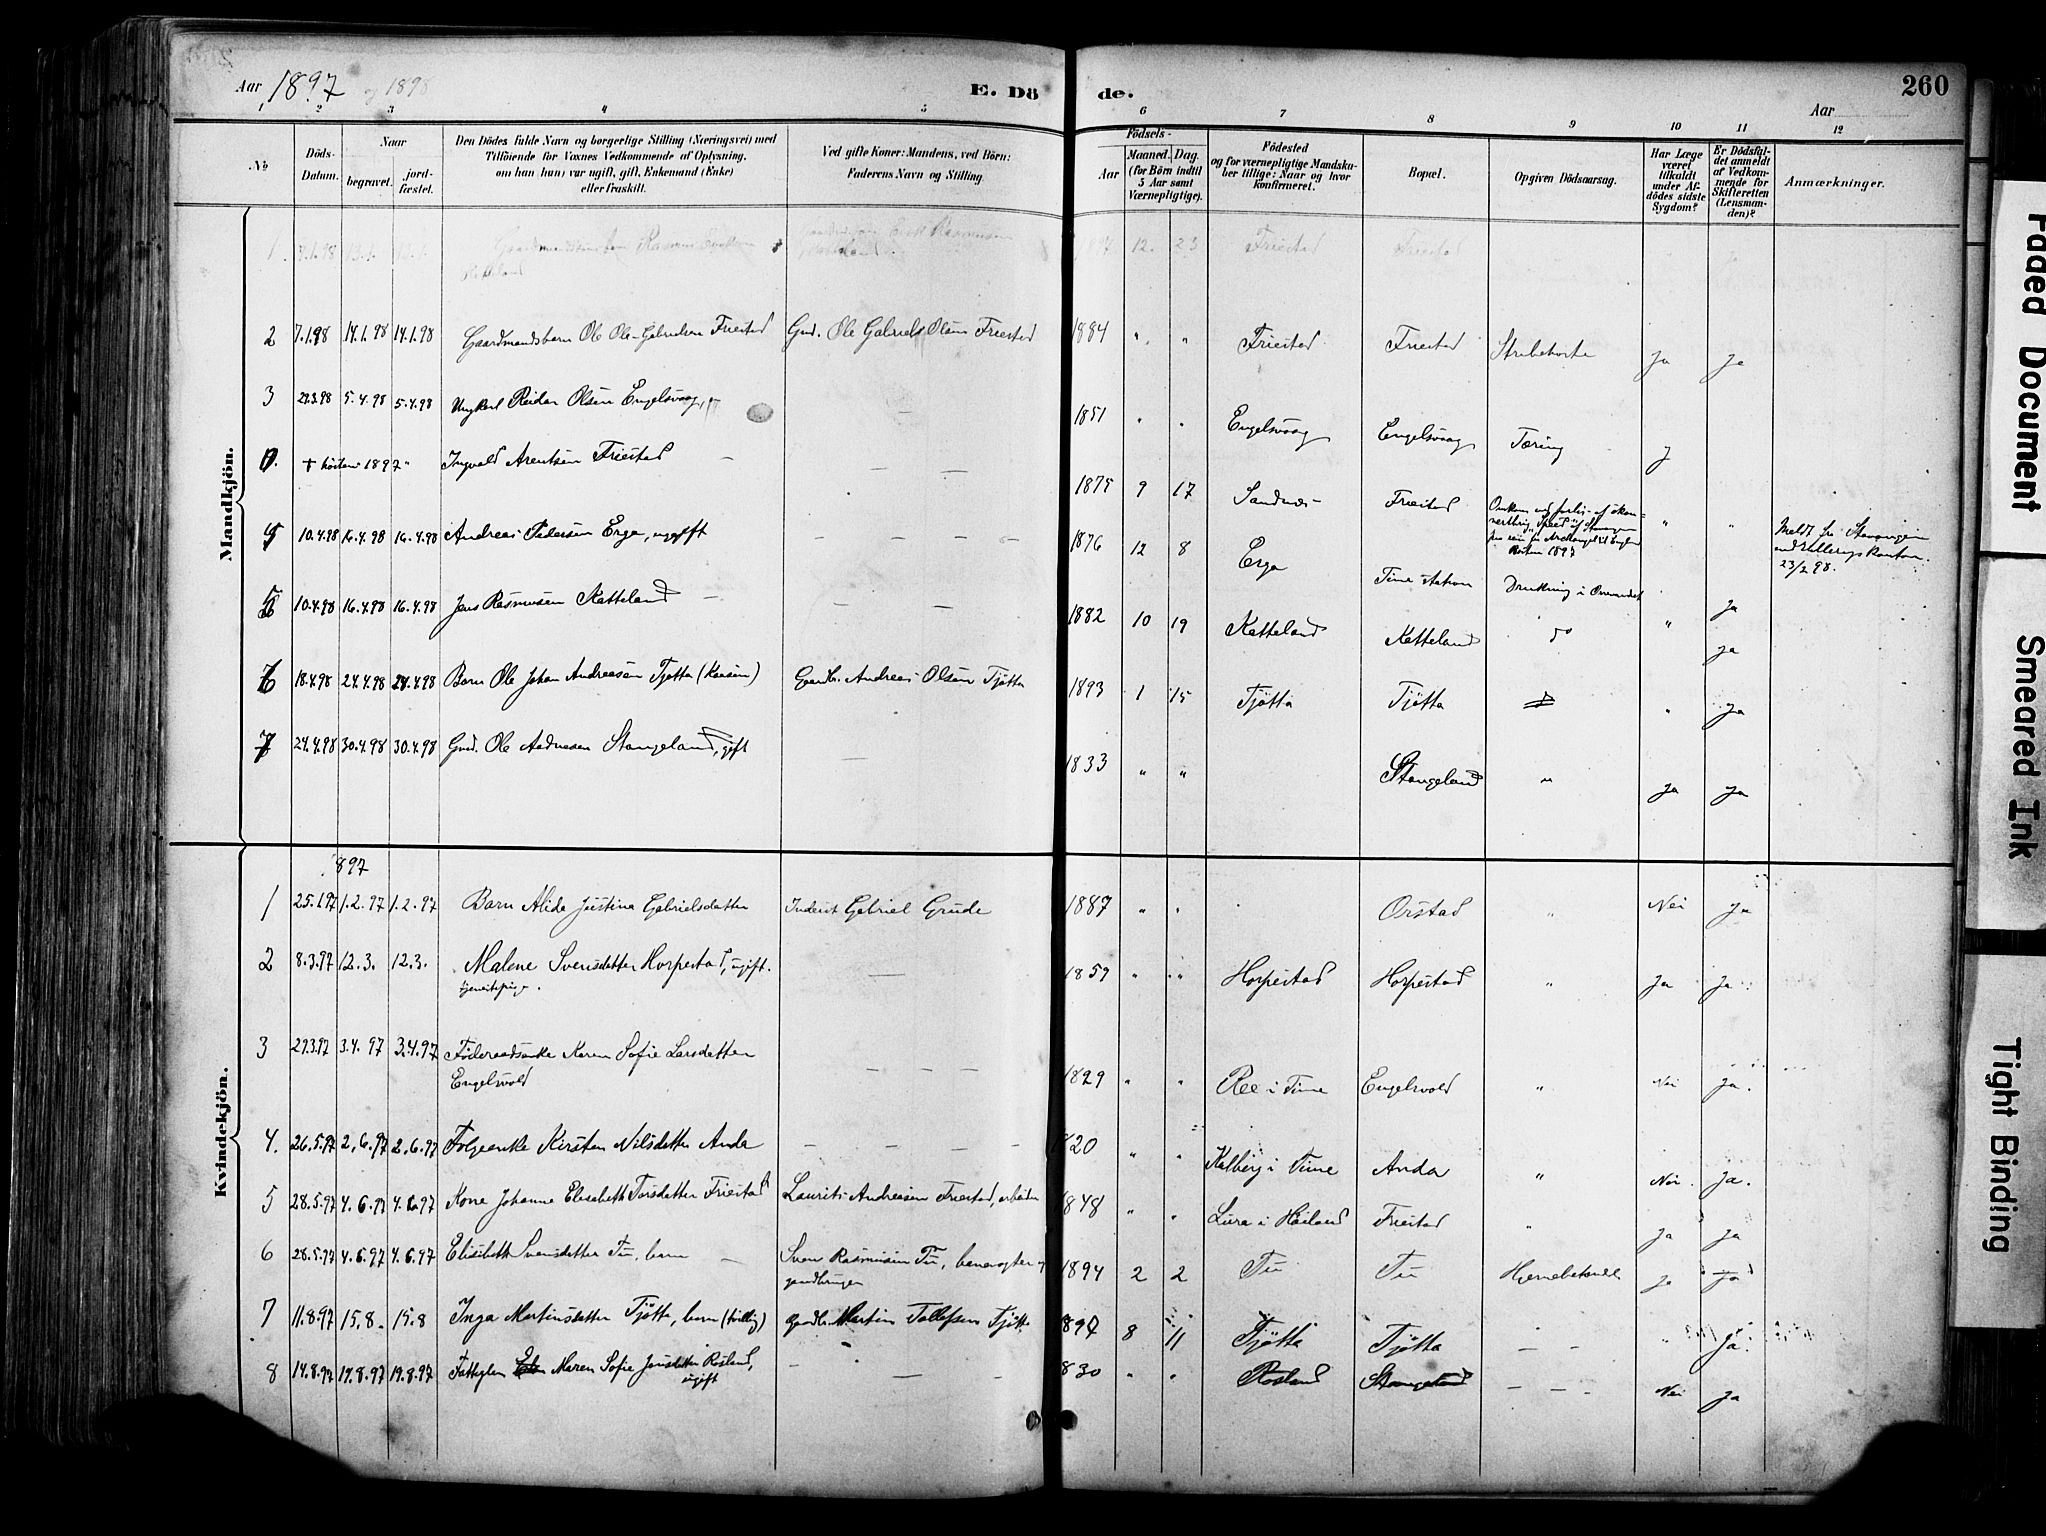 Aar 1897 og 1898
E. Dö
de.
260
Aar
1 2 3 4 5 6 7 8 9 10 11 12
No
Döds-Datum.
Naar
begravet.
jord-fæstet.
Den Dödes fulde Navn og borgerlige Stilling (Næringsvei) med
Tilföiende for Voxnes Vedkommende af Oplysning,
om han (hun) var ugift, gift, Enkemand (Enke)
eller fraskilt.
Ved gifte Koner: Mandens, ved Börn:
Faderens Navn og Stilling.
Födsels-
Aar
Maaned. Dag.
(for Börn indtil
5 Aar samt
Værnepligtige).
Födested
og for værnepligtige Mandska-
ber tillige: Naar og hvor
konfirmeret.
Bopæl.
Opgiven Dödsaarsag.
Har Læge
været
tilkaldt
under Af-
dödes sidste
Sygdom?
Er Dödsfal-
det anmeldt
af Vedkom-
mende for
Skifteretten
(Lensman-
den)?
Anmærkninger.
Mandkjön.
1. 13.1. 13.1. Rasmus 1897 12. 23 Friestad Friestad
2 7.1.98 14.1.98 14.1.98 Gaardmandsbarn Ole Ole-Gabrielsen Friestad Gmd. Ole Gabriel Olsen Friestad 1884 " " Friestad Friestad Strubehoste Ja Ja
3 29.3.98 5.4.98 5.4.98 Ungkarl Reidar Olsen Engelsvaag 1851 " " Engelsvaag Engelsvaag Tæring J
0. + hösten 1897 " Ingvald Arentsen Friestad 1875 9 17 Sandnæs Friestad " "
Meldt fra Stavanger
23/2 98.
4 10.4.98 16.4.98 16.4.98 Andreas Pedersen Erga, ugift 1876 12 8 Erga Time Station Drukning i Orrevandet Ja
5 10.4.98 16.4.98 16.4.98 Jens Rasmusen Katteland 1882 10 19 Katteland Katteland do " Ja
6 18.4.98 24.4.98 24.4.98 Barn Ole Johan Andreasen Tjøtta Gaardb. Andreas Olsen Tjøtta 1893 1 15 Tjøtta Tjøtta " Ja
7 24.4.98 30.4.98 30.4.98 Gmd. Ole Andresen Stangeland, gift 1833 " " Stangeland " Ja Ja
Kvindekjön.
1897
1 25.1.97 1.2.97 1.2.97 Barn Alida Justina Gabrielsdatter Inderst Gabriel Grude 1887 " " Orstad " Nei Ja
2 8.3.97 12.3. 12.3. Malene Svensdatter Horpestad, ugift.
tjenestepige.
1859 " " Horpestad Horpestad " Ja Ja
3 27.3.97 3.4.97 3.4.97 Føderaadsenke Karen Sofie Larsdatter
Engelsvold
1829 " " Ree i Time Engelsvold " Nei Ja.
4. 26.5.97 2.6.97 2.6.97 Folgeenke Kirsten Nilsdatter Anda 1820 " " Kalberg i Time Anda " Nei Ja.
5 28.5.97 4.6.97 4.6.97 Kone Johanne Elisabeth Torsdatter Friestad Laurits Andreasen Friestad, arbeider 1848 " " Lura i Høiland Friestad " Ja Ja
6 28.5.97 4.6.97 4.6.97 Elisabeth Svensdatter Tu, barn Sven Rasmusen Tu, banevogter og
gaardbruger
1894 2 2 Tu Tu Hjernebetændelse Ja Ja
7 11.8.97 15.8. 15.8 Inga Martinsdatter Tjøtta, barn (tvilling) Gaardb. Martin Tollefsen Tjøtta 1897 8 11 Tjøtta Tjøtta " Ja.
8 14.8.97 19.8.97 19.8.97 Fattiglem Maren Sofie Jonsdatter Rosland,
ugift
1830 " " Rosland Stangeland Nei Ja
Faded Document
Smeared Ink
Tight Binding